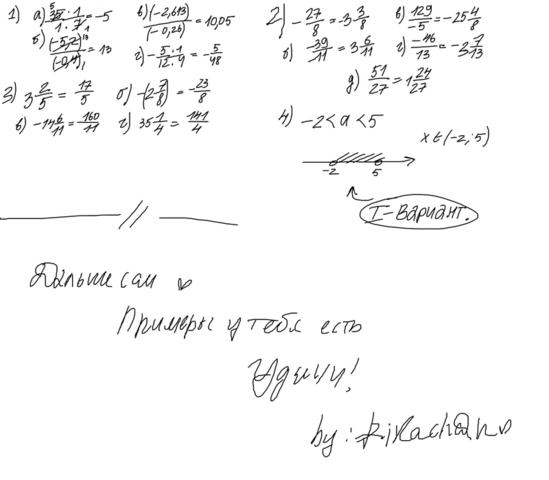 1) а) 35·1 / 1·7 = -5 в) (-2,613) / (-0,26) = 10,05
б) (-5,2) / (-0,4) = 13 г) -5·1 / 12·4 = -5/48
2) -27/8 = -3 3/8 в) 129/-5 = -25 4/8
б) -39/11 = 3 6/11 г) -46/13 = -3 7/13
д) 51/27 = 1 24/27
3) 3 2/5 = 17/5 б) -(2 7/8) = -23/8
в) -14 6/11 = 160/11 г) 35 1/4 = 141/4
4) -2 < a < 5
x ∈ (-2; 5)
-2 5
I-Вариант.
Дальше сам
Примеры у тебя есть
Удачи!
by: